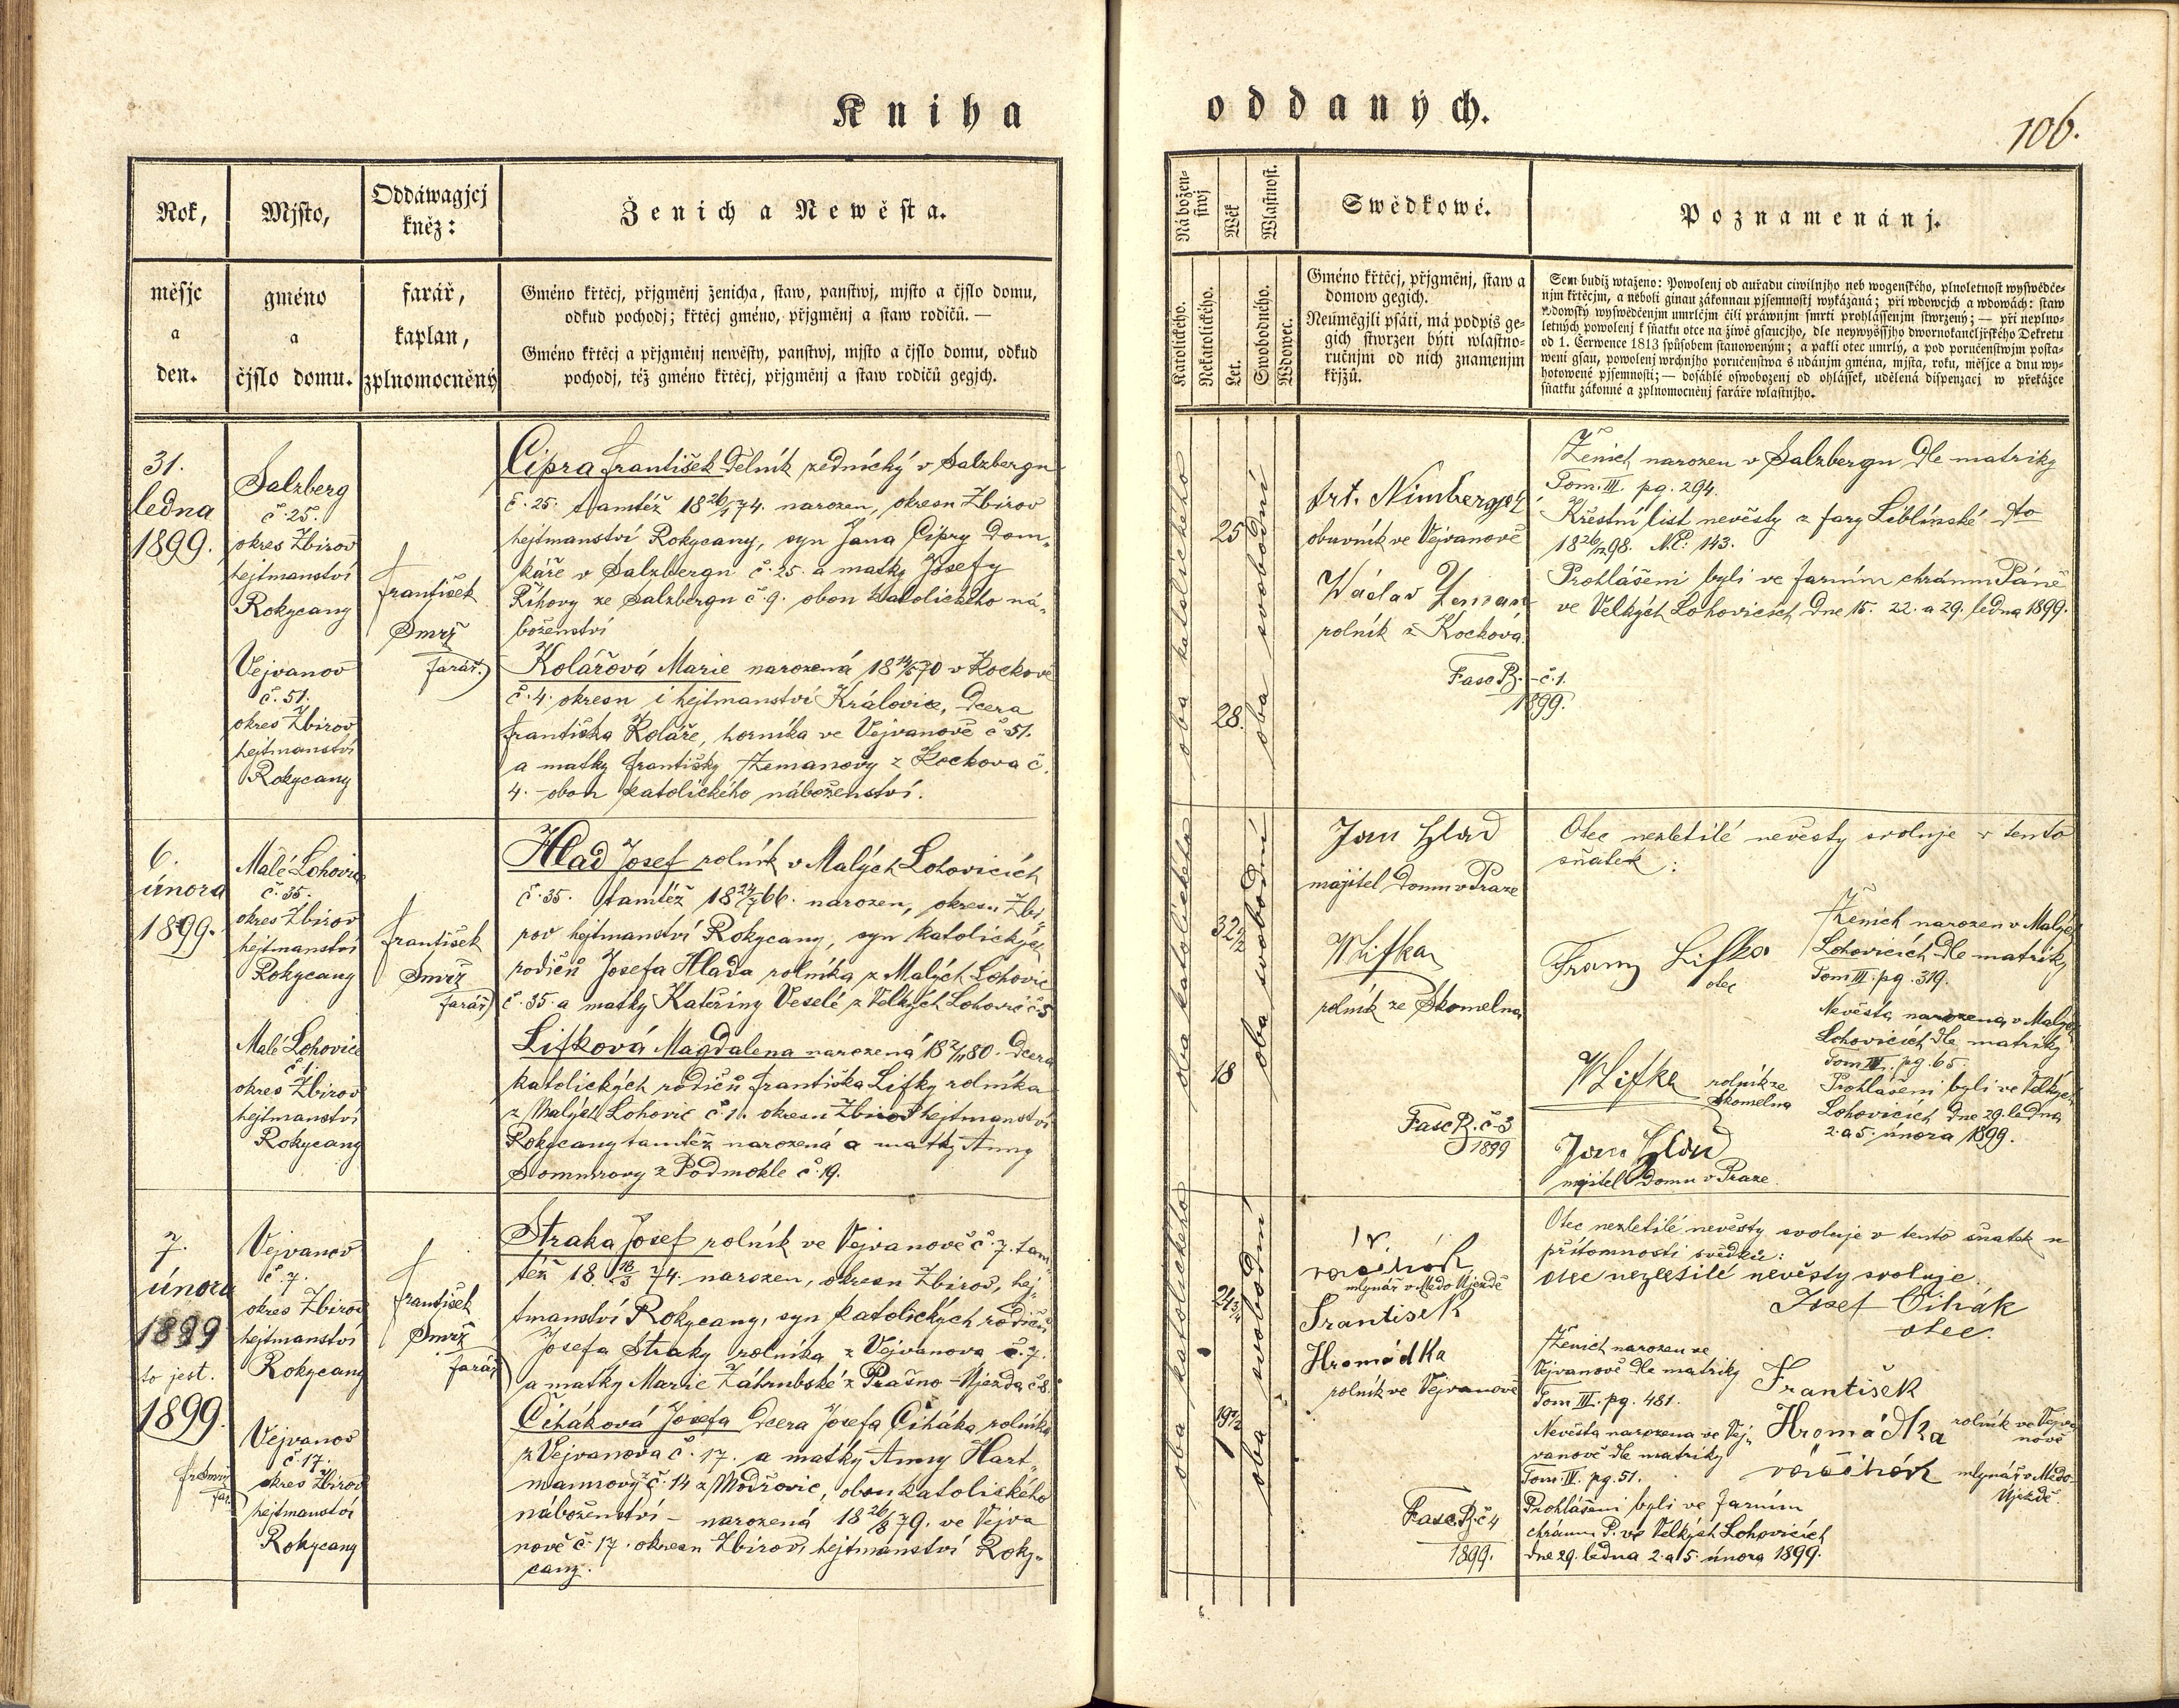 Kniha
oddaných.
106.
Rok,
měsjc
a
den.
Mjsto,
gméno
a
čjslo domu.
Oddáwagjcj
kněz:
farář,
kaplan,
zplnomocněný
Ženich a Newěsta.
Gméno křtěcj, přjgměnj ženicha, staw, panstwj, mjsto a čjslo domu,
odkud pochodj; křtěcj gméno, přjgměnj a staw rodičů. —
Gméno křtěcj a přjgměnj newěsty, panstwj, mjsto a čjslo domu, odkud
pochodj, též gméno křtěcj, přjgměnj a staw rodičů gegjch.
Nábožen-
stwj
Katolického.
Nekatolického.
Wěk
Let.
Wlastnost.
Swobodného.
Wdowec.
Swědkowé.
Gméno křtěcj, přjgměnj, staw a
domow gegich.
Neúměgjli psáti, má podpis ge-
gich stwrzen býti wlastno-
ručnjm od nich znamenjm
křjžů.
Poznamenánj.
Sem budiž wtaženo: Powolenj od auřadu ciwilnjho neb wogenského, plnoletnost wyswědče-
njm křtěcjm, a neboli ginau zákonnau pjsemnostj wykázaná; při wdowcjch a wdowách: staw
wdowský wyswědčenjm umrlčjm čili práwnjm smrti prohlássenjm stwrzený; — při neplno-
letných powolenj k sňatku otce na žiwě gsaucjho, dle neywyššjho dwornokancljřského Dekretu
od 1. Čerwence 1813 spůsobem stanoweným; a pakli otec umrlý, a pod poručenstwjm posta-
weni gsau, powolenj wrchnjho poručenstwa s udánjm gména, mjsta, roku, měsjce a dnu wy-
hotowené pjsemnosti; — dosáhlé oswobozenj od ohlássek, udělená dispenzacj w překážce
sňatku zákonné a zplnomocněnj faráře wlastnjho.
31.
ledna
1899.
Salzberg
č. 25.
okres Zbirov
hejtmanství
Rokycany
Vejvanov
č. 51.
okres Zbirov
hejtmanství
Rokycany
František
Smrž
farář
Cipra František dělník zednický v Salzbergu
č. 25. tamtéž 18 26/1 74. narozen, okresu Zbirov
hejtmanství Rokycany, syn Jana Cipry Dom-
káře v Salzbergu č. 25. a matky Josefy
Říhovy ze Salzbergu č. 9. obou katolického ná-
boženství
Kolářová Marie narozená 70 v Kočkově
č. 4. okresu i hejtmanství Kralovice, dcera
Františka Koláře, horníka ve Vejvanově č 51.
a matky Františky Zemanovy z Kočkova č.
4. obou katolického náboženství.
oba katolického
25
28.
oba svobodní
obuvník ve Vejvanově
Václav Zeman
rolník z Kočková
Fasc B. č. 1.
1899.
Ženich narozen v Salzbergu dle matriky
Tom. III. pg. 294.
Křestní list nevěsty z fary Liblínské dto
98. N.E: 143.
Prohlášeni byli ve farním chrámu Páně
ve Velkých Lohovicích dne 15. 22. a 29. ledna 1899.
6.
února
1899.
Malé Lohovice
č. 35.
okres Zbirov
hejtmanství
Rokycany
Malé Lohovice
č 1.
okres Zbirov
hejtmanství
Rokycany
František
Smrž
farář
Hlad Josef rolník v Malých Lohovicích
č. 35. tamtéž 18 24/7 66. narozen, okresu Zbi-
rov hejtmanství Rokycany, syn katolických
rodičů Josefa Hlada rolníka z Malých Lohovic
č. 35. a matky Kateřiny Veselé z Velkých Lohovic č. 5
Lifková Magdalena narozená 80. dcera
katolických rodičů Františka Lifky rolníka
z Malých Lohovic č. 1. okresu Zbirov hejtmanství
Rokycany tamtéž narozená a matky Anny
z Podmokle č. 19.
oba katolického
32 1/2
18
oba svobodní
Jan Hlad
majitel domu v Praze
W Lifka
rolník ze Skomelna
Fasc B. č. 3
1899
Otec nezletilé nevěsty svoluje v tento
sňatek:
Franz Lifka
otec
W Lifka rolník ze
Skomelna
Jan Hlad
majitel domu v Praze.
Ženich narozen v Malých
Lohovicích dle matriky
Tom III. pg. 319.
Nevěsta narozena v Malých
Lohovicích dle matriky
Tom IV. pg. 65
Prohlášeni byli ve Velkých
Lohovicích dne 29. ledna
2. a 5. února 1899.
7.
února
1899
to jest.
1899.
Fr Smrž
far.
Vejvanov
č. 7.
okres Zbirov
hejtmanství
Rokycany
Vejvanov
č. 17.
okres Zbirov
hejtmanství
Rokycany
František
Smrž
farář
Straka Josef rolník ve Vejvanově č. 7. tam
též 18. 18/3 74. narozen, okresu Zbirov, hej-
tmanství Rokycany, syn katolických rodičů
Josefa Straky rolníka z Vejvanova č. 7.
a matky Marie Záhrubské z Prašno-Újezda č. 8.
Čiháková Josefa dcera Josefa Čiháka rolníka
z Vejvanova č. 17. a matky Anny Hart-
mannovy č. 14 z Modřovic, obou katolického
náboženství – narozená 18 26/8 79. ve Vejva
nově č. 17. okresu Zbirov, hejtmanství Roky-
cany.
oba katolického
24 3/4
19 1/2
oba svobodní
mlynář v Medo Újezdě
František
Hromádka
rolník ve Vejvanově
Fasc. B. č 4
1899.
Otec nezletilé nevěsty svoluje v tento sňatek u
přítomnosti svědků:
otec nezletilé nevěsty svoluje.
Josef Čihák
otec.
Ženich narozen ve
Vejvanově dle matriky
Tom III. pg. 481.
Nevěsta narozena ve Vej-
vanově dle matriky
Tom. IV. pg. 51.
František
Hromádka rolník ve Vejva
nově
mlynář v Medo-
Újezdě.
Prohlášeni byli ve farním
chrámu P. ve Velkých Lohovicích
dne 29. ledna 2. a 5. února 1899.